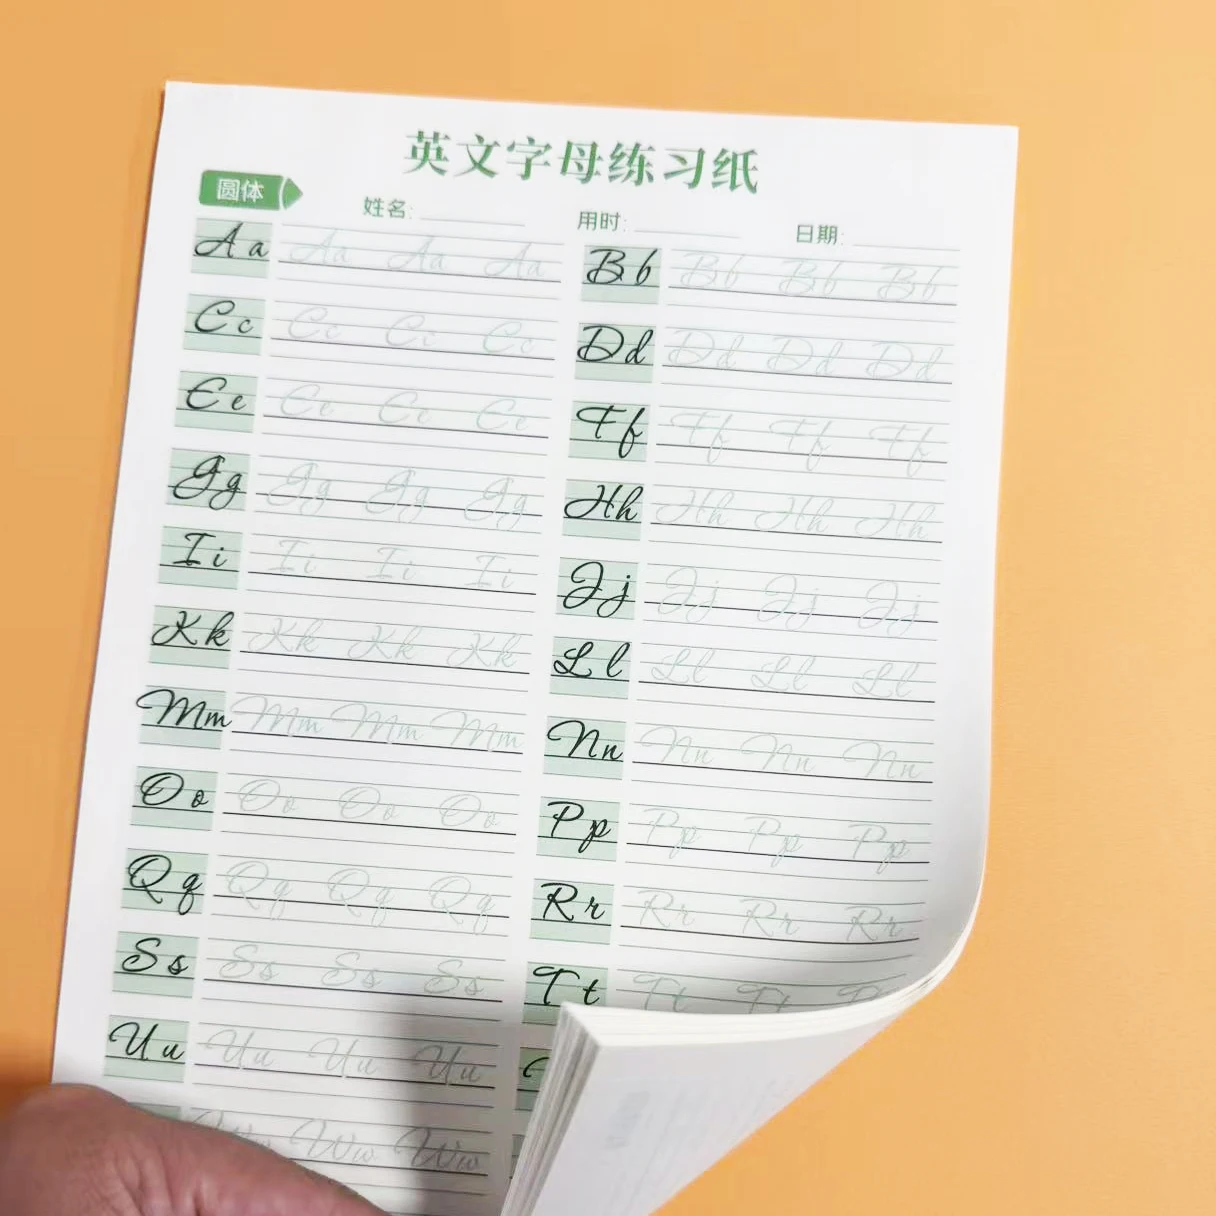 英文字母练习纸
圆体
姓名: 用时: 日期:
A a Aa Aa Aa B b Bb Bb Bb
C c Cc Cc Cc D d Dd Dd Dd
E e Ee Ee Ee F f Ff Ff Ff
G g Gg Gg Gg H h Hh Hh Hh
I i Ii Ii Ii J j Jj Jj Jj
K k Kk Kk Kk L l Ll Ll Ll
M m Mm Mm Mm N n Nn Nn Nn
O o Oo Oo Oo P p Pp Pp Pp
Q q Qq Qq Qq R r Rr Rr Rr
S s Ss Ss Ss T t Tt Tt
U u Uu Uu Uu
Ww Ww